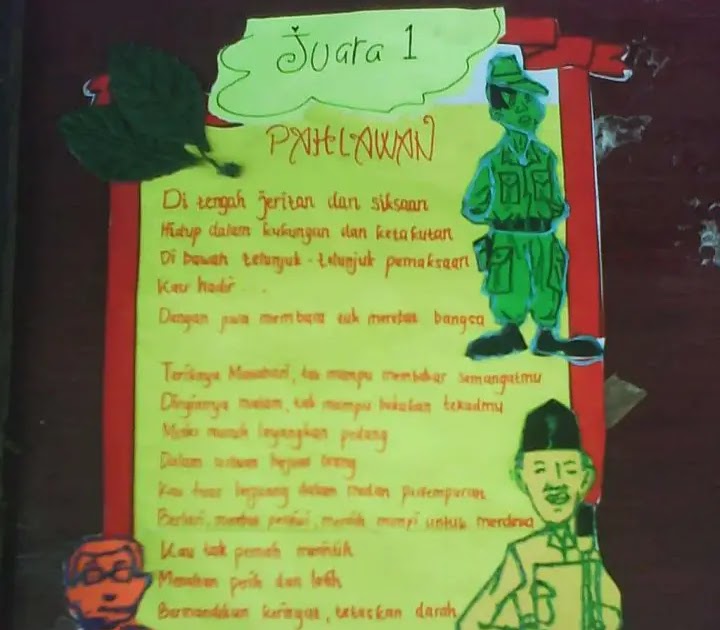 Juara 1
PAHLAWAN
Di tengah jeritan dan siksaan
Hidup dalam kukungan dan ketakutan
Di bawah telunjuk-telunjuk pemaksaan
Kau hadir ...
Dengan jiwa membara tuk merebut bangsa
Teriknya Matahari, tak mampu membakar semangatmu
Dinginnya malam, tak mampu bekukan tekadmu
Meski musuh layangkan pedang
Dalam hujan
Kau terus berjuang dalam medan pertempuran
Berlari, peluru, meraih mimpi untuk merdeka
Kau tak pernah merintih
Menahan perih dan letih
Bermandikan keringat, teteskan darah